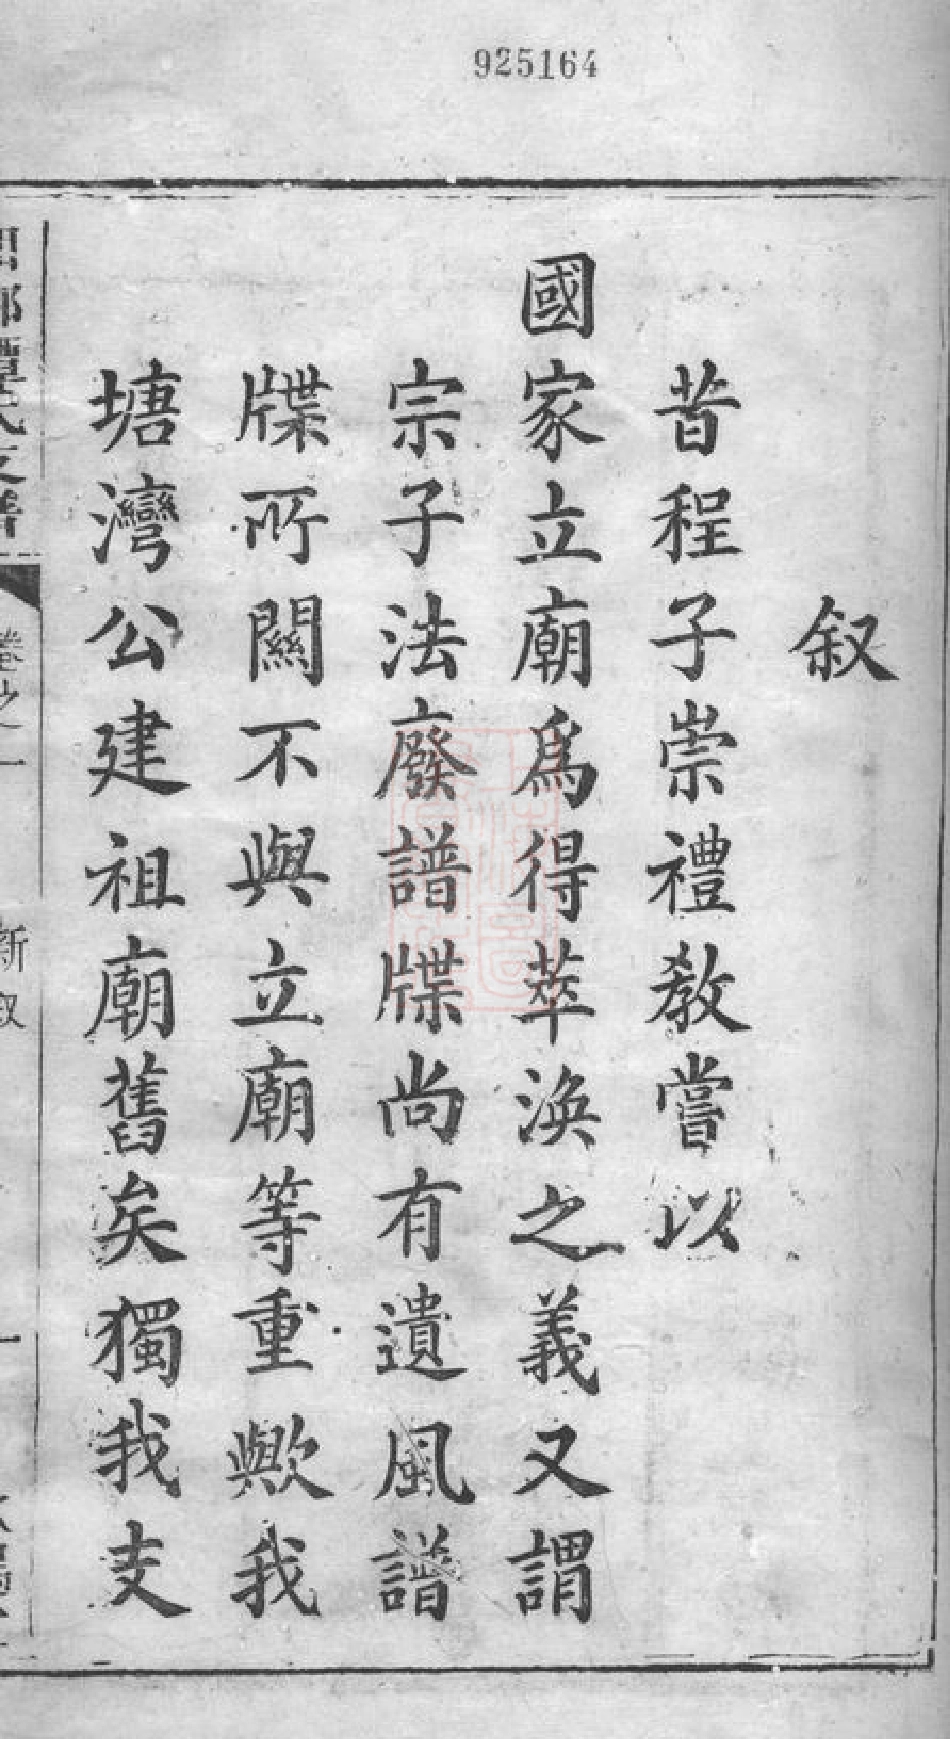 925164
叙
昔程子崇禮敎嘗以
國家立廟爲得萃渙之義又謂
宗子法廢譜牒尚有遺風譜
牒所關不與立廟等重歟我
塘灣公建祖廟舊矣獨我支
氏支譜
卷之一
新叙
一